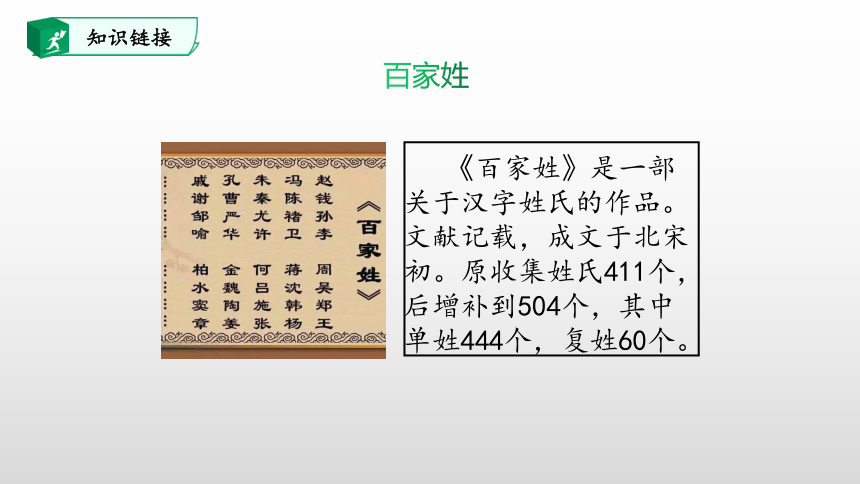 知识链接
百家姓
《百家姓》
赵钱孙李 周吴郑王
冯陈褚卫 蒋沈韩杨
朱秦尤许 何吕施张
孔曹严华 金魏陶姜
戚谢邹喻 柏水窦章
…… ……
《百家姓》是一部
关于汉字姓氏的作品。
文献记载，成文于北宋
初。原收集姓氏411个，
后增补到504个，其中
单姓444个，复姓60个。